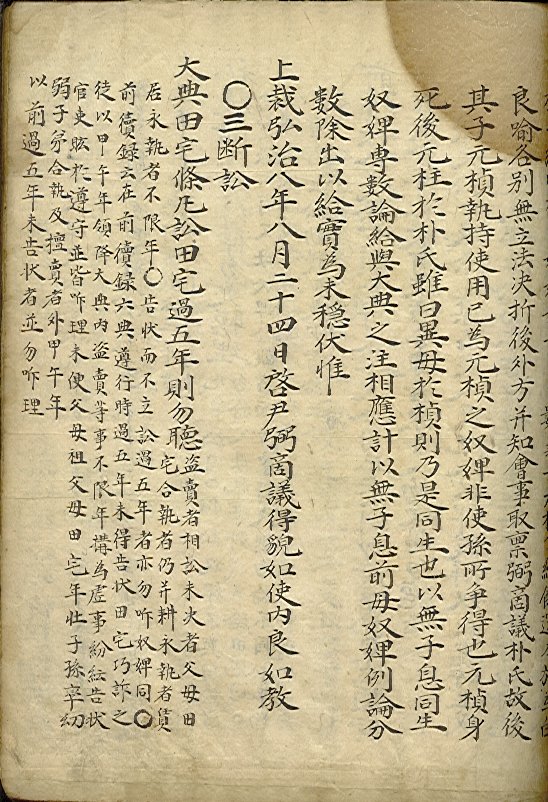 良喻各別無立法決折後外方并知會事取禀弼商議朴氏故後
其子元楨執持使用已為元楨之奴婢非使孫所爭得也元楨身
死後元柱於朴氏雖曰異母於楨則乃是同生也以無子息同生
奴婢專數論給與大典之注相應計以無子息前母奴婢例論分
數除出以給實為未穩伏惟
上裁弘治八年八月二十四日啓尹弼商議得貌如使内良如教
〇三断訟
大典田宅條凡訟田宅過五年則勿聽盜賣者相訟未决者父母田
宅合執者仍并耕永執者賃
居永執者不限年〇告状而不立訟過五年者亦勿听奴婢同〇
前續録云在前續録大典遵行時過五年未得告状田宅巧詐之
徒以甲午年領降大典内盜賣等事不限年搆為虛事紛紜告状
官吏眩於遵守並皆听理未便父母祖父母田宅年壮子孫率幼
弱子孫合執及擅賣者外甲午年
以前過五年未告状者並勿听理